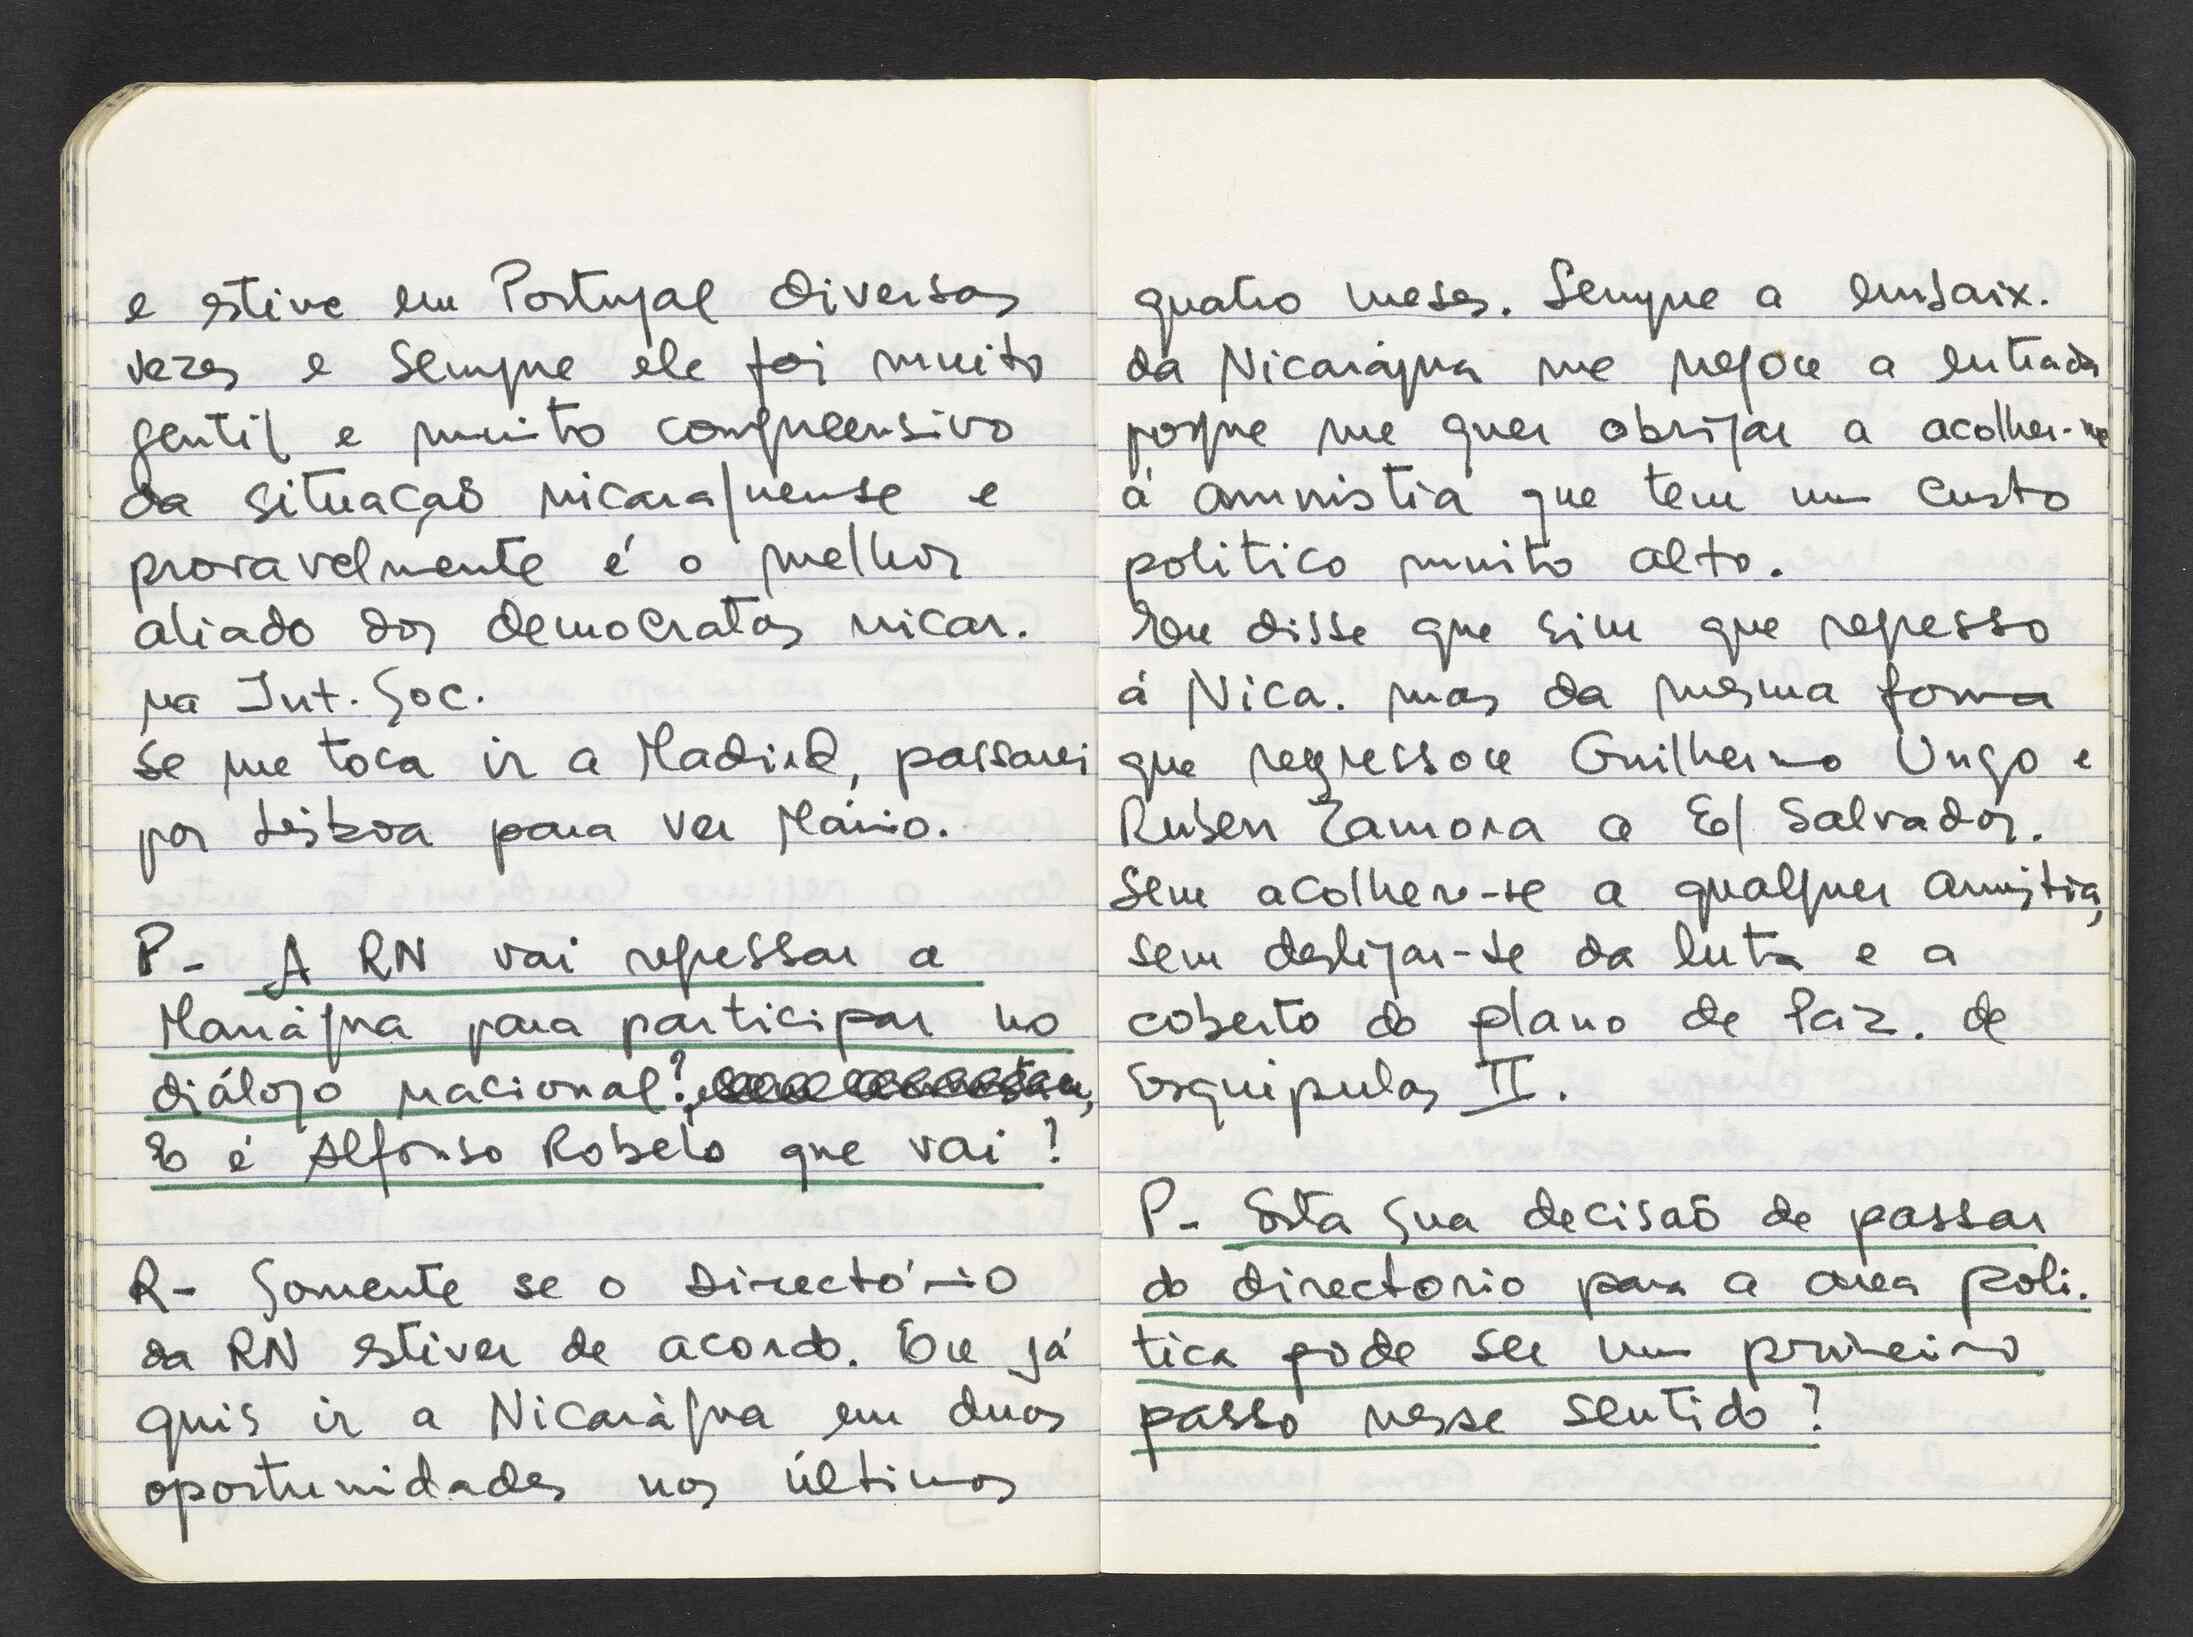 e estive em Portugal diversas
vezes e sempre ele foi muito
gentil e muito compreensivo
da situação nicaraguense e
provavelmente é o melhor
aliado dos democratas nicar.
na Int. Soc.
Se me toca ir a Madrid, passarei
por Lisboa para ver Mário.
P- A RN vai regressar a
Manágua para participar no
diálogo nacional?
E é Alfonso Robelo que vai?
R- Somente se o Directório
da RN estiver de acordo. Eu já
quis ir a Nicarágua em duas
oportunidades nos últimos
quatro meses. Sempre a embaix.
da Nicarágua me negou a entrada
porque me quer obrigar a acolher-me
á amnistia que tem um custo
politico muito alto.
Eu disse que sim que regresso
á Nica. mas da mesma forma
que regressou Guilhermo Ungo e
Ruben Zamora a El Salvador.
Sem acolher-se a qualquer amnistia,
sem desligar-se da luta e a
coberto do plano de Paz. de
Esquipulas II.
P- Esta sua decisão de passar
do directorio para a area poli.
tica pode ser um primeiro
passo nesse sentido?